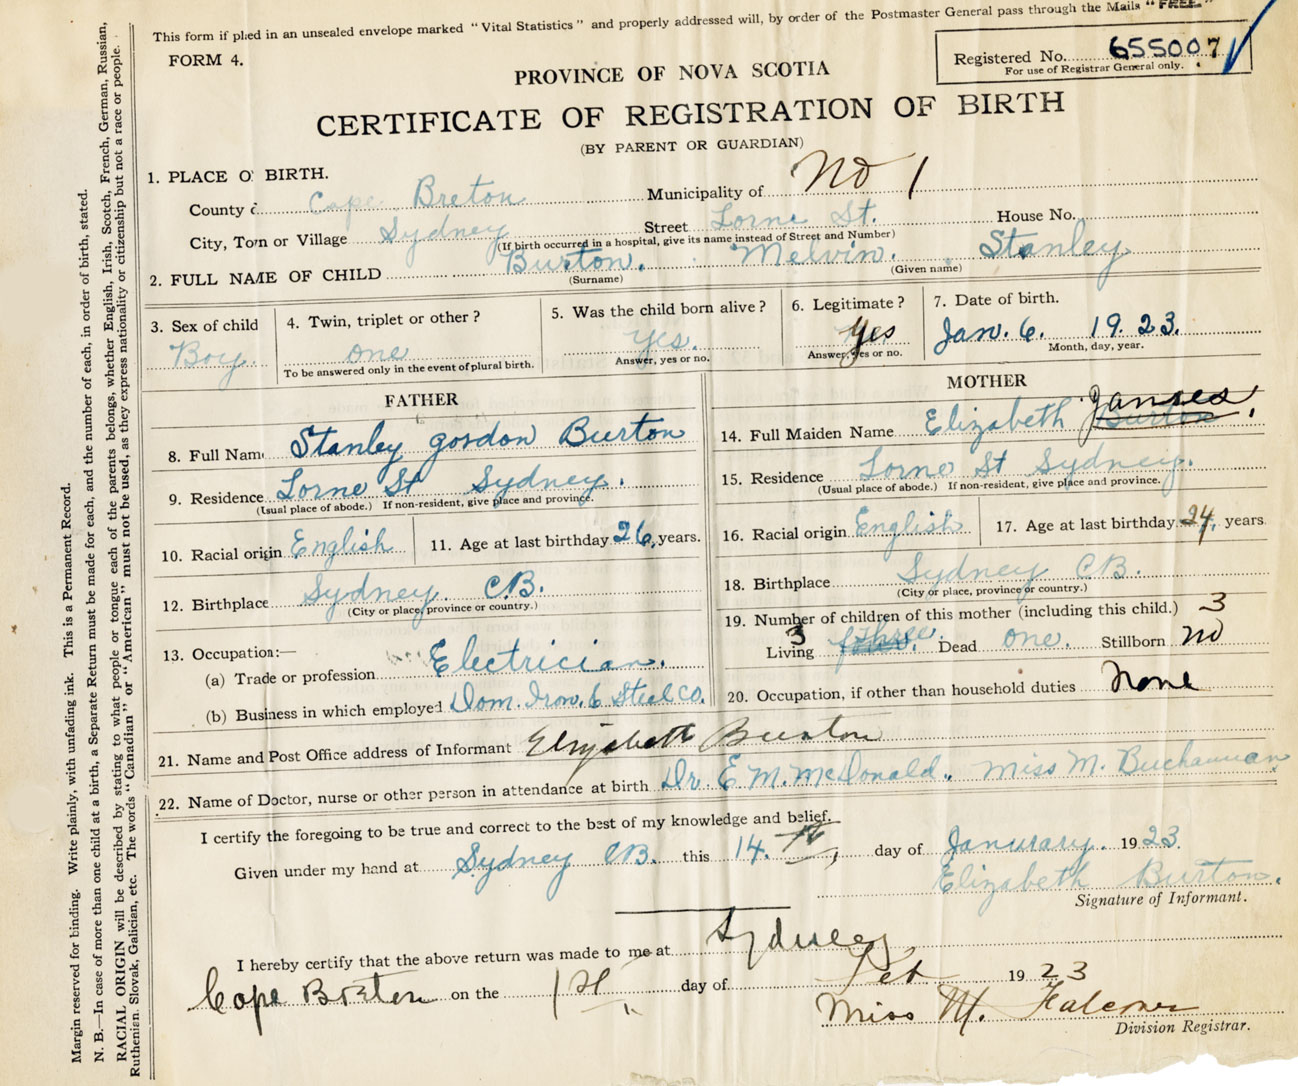 This form if plied in an unsealed envelope marked "Vital Statistics" and properly addressed will, by order of the Postmaster General pass through the Mails "FREE."
FORM 4.
Registered No. 655007
For use of Registrar General only.
PROVINCE OF NOVA SCOTIA
CERTIFICATE OF REGISTRATION OF BIRTH
(BY PARENT OR GUARDIAN)
1. PLACE O' BIRTH.
County Cape Breton Municipality of No 1
City, Town or Village Sydney Street Lorne St. House No.
(If birth occurred in a hospital, give its name instead of Street and Number)
2. FULL NAME OF CHILD Burton. Melvin. Stanley
(Surname) (Given name)
3. Sex of child Boy.
4. Twin, triplet or other? one
To be answered only in the event of plural birth.
5. Was the child born alive? Yes.
Answer, yes or no.
6. Legitimate? Yes
Answer, yes or no.
7. Date of birth.
Jan. 6. 19.23.
Month, day, year.
FATHER
8. Full Name Stanley Gordon Burton
9. Residence Lorne St Sydney.
(Usual place of abode.) If non-resident, give place and province.
10. Racial origin English 11. Age at last birthday 26, years.
12. Birthplace Sydney C.B.
(City or place, province or country.)
13. Occupation:—
(a) Trade or profession Electrician.
(b) Business in which employed Dom. Iron. & Steel Co.
MOTHER
14. Full Maiden Name Elizabeth Burton
15. Residence Lorne St Sydney.
(Usual place of abode.) If non-resident, give place and province.
16. Racial origin English 17. Age at last birthday 24, years
18. Birthplace Sydney C.B.
(City or place, province or country.)
19. Number of children of this mother (including this child.) 3
Living 3 three. Dead one. Stillborn no
20. Occupation, if other than household duties None
21. Name and Post Office address of Informant Elizabeth Burton
22. Name of Doctor, nurse or other person in attendance at birth Dr. E M. McDonald. Miss M. Buchannan
I certify the foregoing to be true and correct to the best of my knowledge and belief.
Given under my hand at Sydney C.B. this 14.th day of Janurary. 1923.
Elizabeth Burton.
Signature of Informant.
I hereby certify that the above return was made to me at Sydney,
Cape Breton on the 1st day of Feb 1923
Miss M. Falconer
Division Registrar.
Margin reserved for binding. Write plainly, with unfading ink. This is a Permanent Record.
N. B.—In case of more than one child at a birth, a Separate Return must be made for each, and the number of each, in order of birth, stated.
RACIAL ORIGIN will be described by stating to what people or tongue each of the parents belongs, whether English, Irish, Scotch, French, German, Russian,
Ruthenian, Slovak, Galician, etc. The words "Canadian" or "American" must not be used, as they express nationality or citizenship but not a race or people.